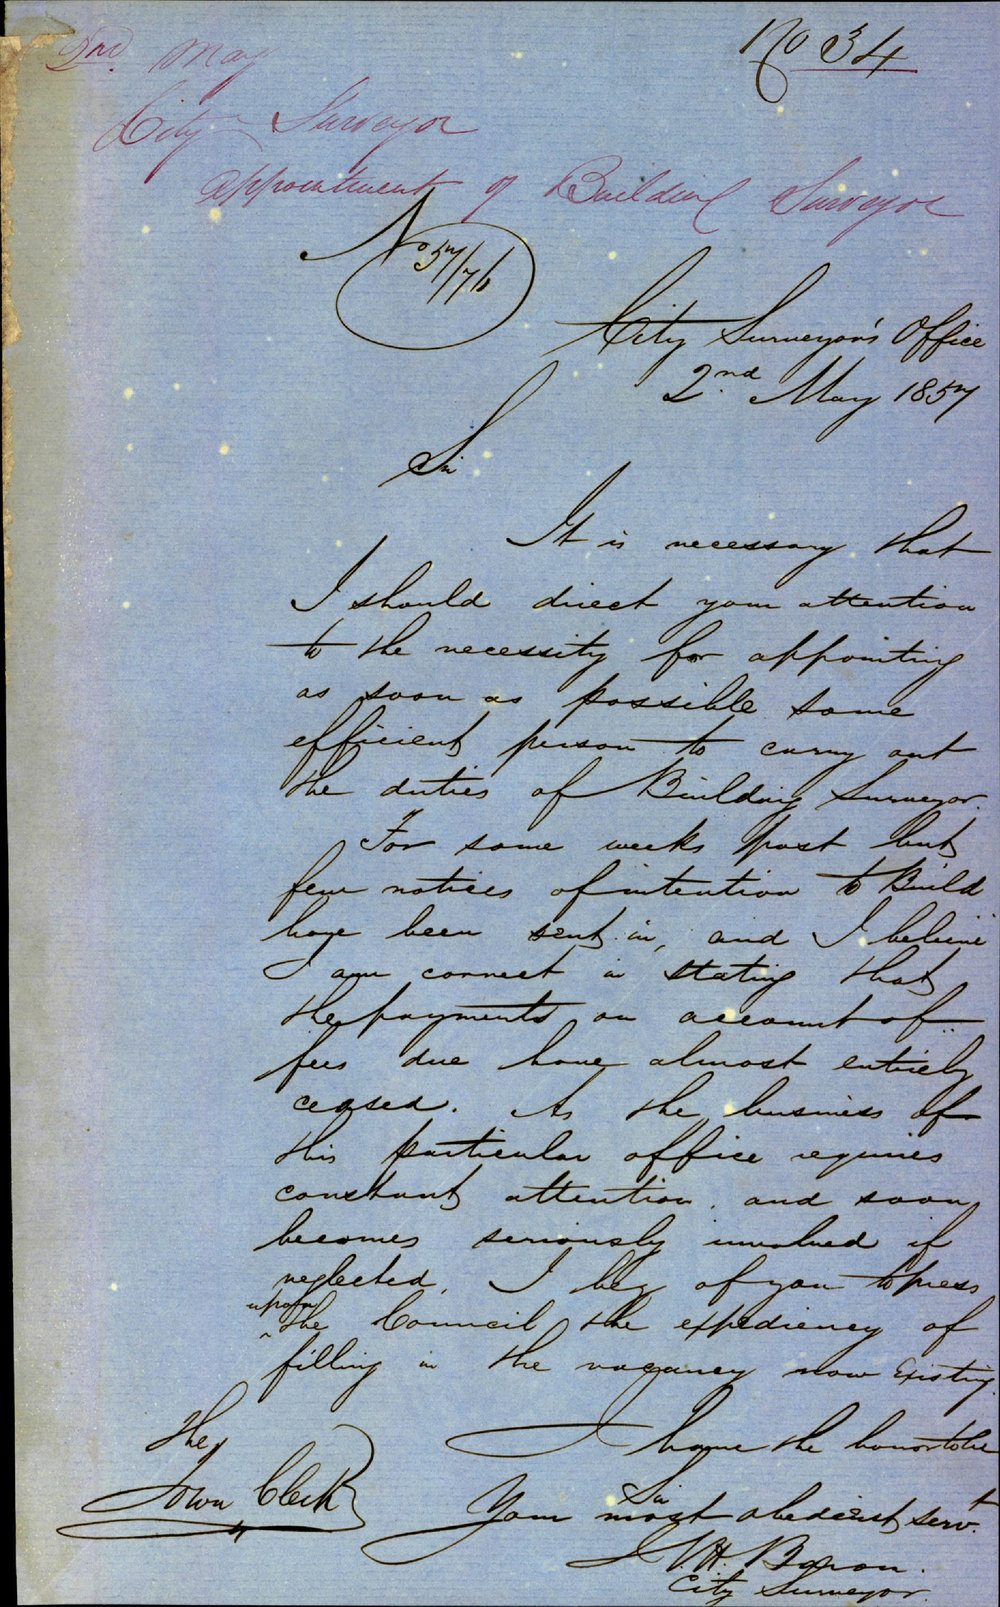 No 34
2nd May
City Surveyor
Appointment of Building Surveyor
No 57/76
City Surveyor's Office
2nd May 1857
Sir
It is necessary that
I should direct your attention
to the necessity for appointing
as soon as possible some
efficient person to carry out
the duties of Building Surveyor.
For some weeks past but
few notices of intention to Build
have been sent in, and I believe
I am correct in stating that
the payments on account of
fees due have almost entirely
ceased. As the business of
this particular office requires
constant attention, and soon
becomes seriously involved if
neglected, I beg of you to press
upon
^ the Council the expediency of
filling in the vacancy now Existing.
I have the honor to be
The
Sir
Town Clerk
Your most obedient servt.
City Surveyor.